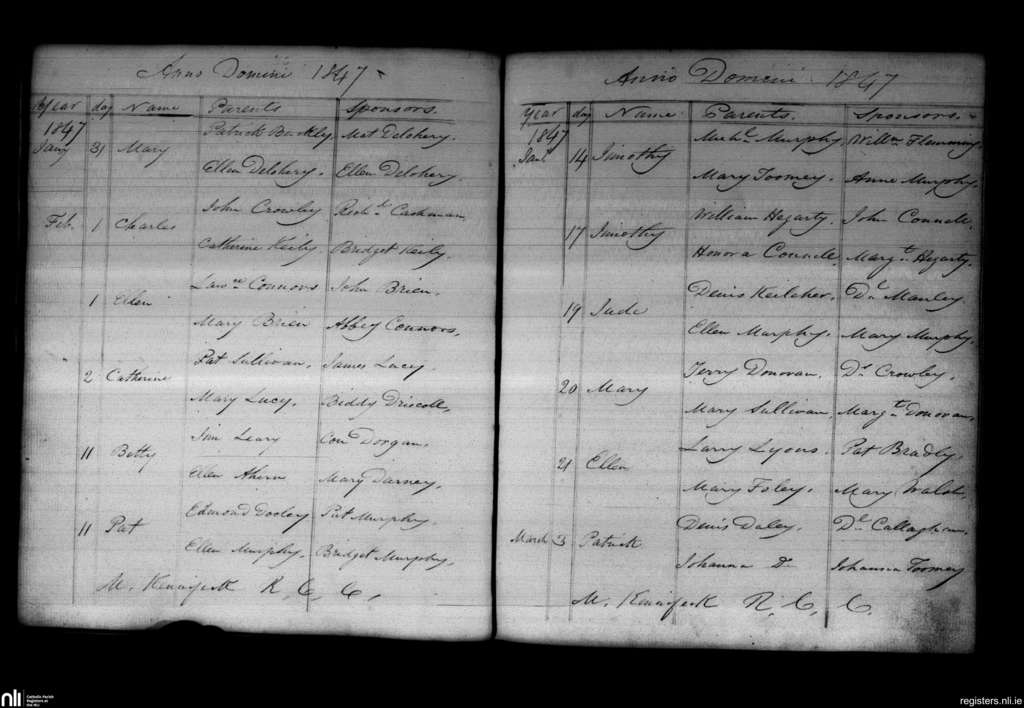 Anno Domini 1847
Year day Name Parents Sponsors.
1847 Patrick Buckley Mat Delohery.
Jany 31 Mary
Ellen Delohery. Ellen Delohery.
John Crowley Richd Cashman
Feb. 1 Charles
Catherine Keily Bridget Keily.
Lawce Connors John Brien.
1 Ellen
Mary Brien Abbey Connors,
Pat Sullivan. James Lucy.
2 Catherine
Mary Lucy. Biddy Driscoll,
Jim Leary Cons Dorgan.
11 Betty
Ellen Ahern Mary Darney,
Edmond Dooley Pat Murphy.
11 Pat
Ellen Murphy. Bridget Murphy,
M. Kennifeck R, C, C,
Anno Domini 1847
Year day Name Parents. Sponsors.
1847 Michl Murphy Willm Flemming.
14 Timothy
Mary Toomey. Anne Murphy.
William Hegarty. John Connell.
17 Timothy
Honora Connell. Margt Hegarty.
Denis Keleher. Dl Manley.
19 Jude
Ellen Murphy. Mary Murphy.
Jerry Donovan. Dl Crowley.
20 Mary
Mary Sullivan, Margt Donovan,
Larry Lyons. Pat Bradly.
21 Ellen
Mary Foley. Mary Walsh,
Denis Daley. Dl Callaghan.
March 3 Patrick
Johanna Do Johanna Toomey
M. Kennifeck R, C, C.
nli Catholic Parish Registers at the NLI
registers.nli.ie